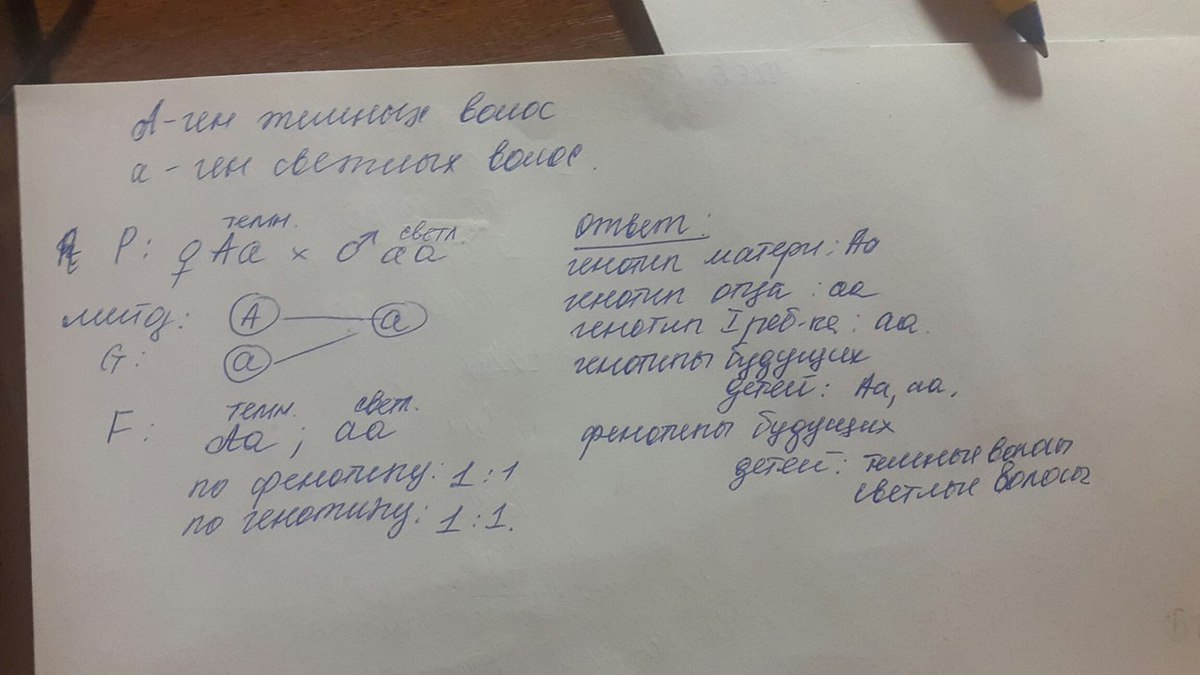 А-ген темных волос
а-ген светлых волос.
темн. светл.
P: ♀ Аа × ♂ аа
мейд: А а
G: а
темн. светл.
F: Аа ; аа
по фенотипу: 1:1
по генотипу: 1:1.
ответ:
генотип матери: Аа
генотип отца: аа
генотип I реб-ка: аа.
генотипы будущих
детей: Аа, аа.
фенотипы будущих
детей: темные волосы
светлые волосы